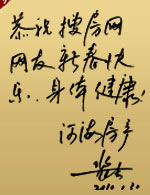 恭祝搜房网
网友新春快
乐、身体健康!
河海房产
2010.1.20